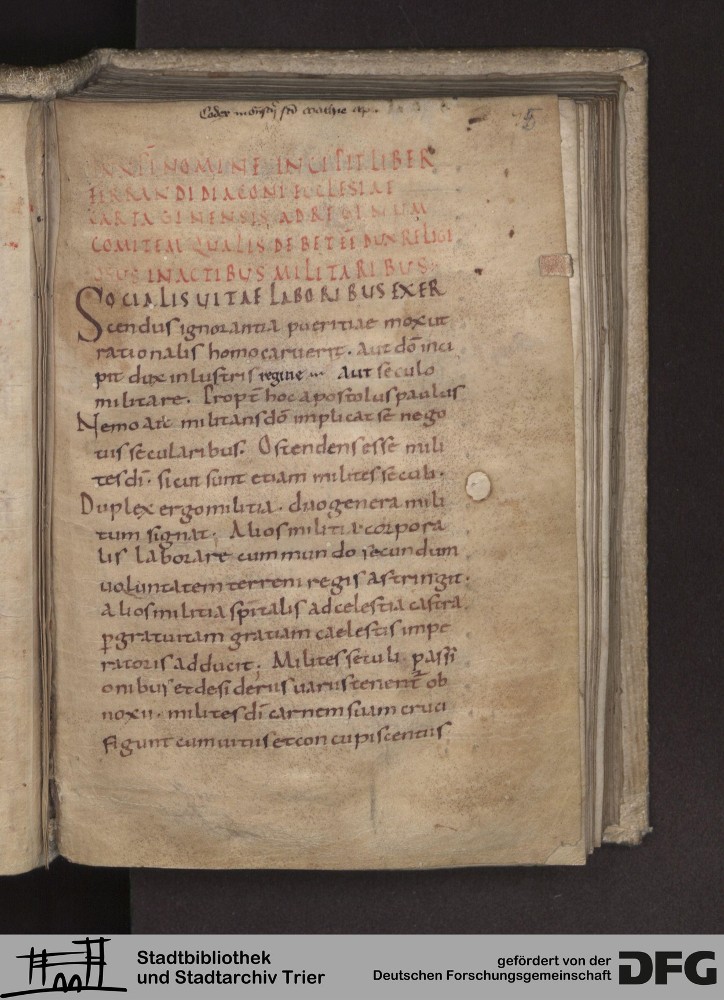 Codex monstÿ sci
5
XPI NOMINE INCIPIT LIBER
FERRANDI DIACONI ECCLESIAE
CARTAGINENSIS AD REGINUM
COMITEM QUALIS DEBET EE DUX RELIGI
OSUS IN ACTIBUS MILITARIBUS
SOCIALIS UITAE LABORIBUS EXER
cendus ignorantia pueritiae mox ut
rationalis homo caruerit. Aut dō inci
pit dux inlustris regine aut seculo
militare. Propt hoc apostolus paulus
Nemo ait militans dō implicat se nego
tiis secularibus. Ostendens esse mili
tes dī. sicut sunt etiam milites seculi.
Duplex ergo militia. duo genera mili
tum signat. Alios militia corpora
lis laborare cum mundo secundum
uoluntatem terreni regis astringit.
alios militia spītalis ad celestia castra
p gratuitam gratiam caelestis impe
ratoris adducit. Milites seculi passi
onibus et desideriis uariis tenent ob
noxii. milites dī carnem suam cruci
figunt cum uitiis et concupiscentiis
Stadtbibliothek
und Stadtarchiv Trier
gefördert von der
Deutschen Forschungsgemeinschaft
DFG